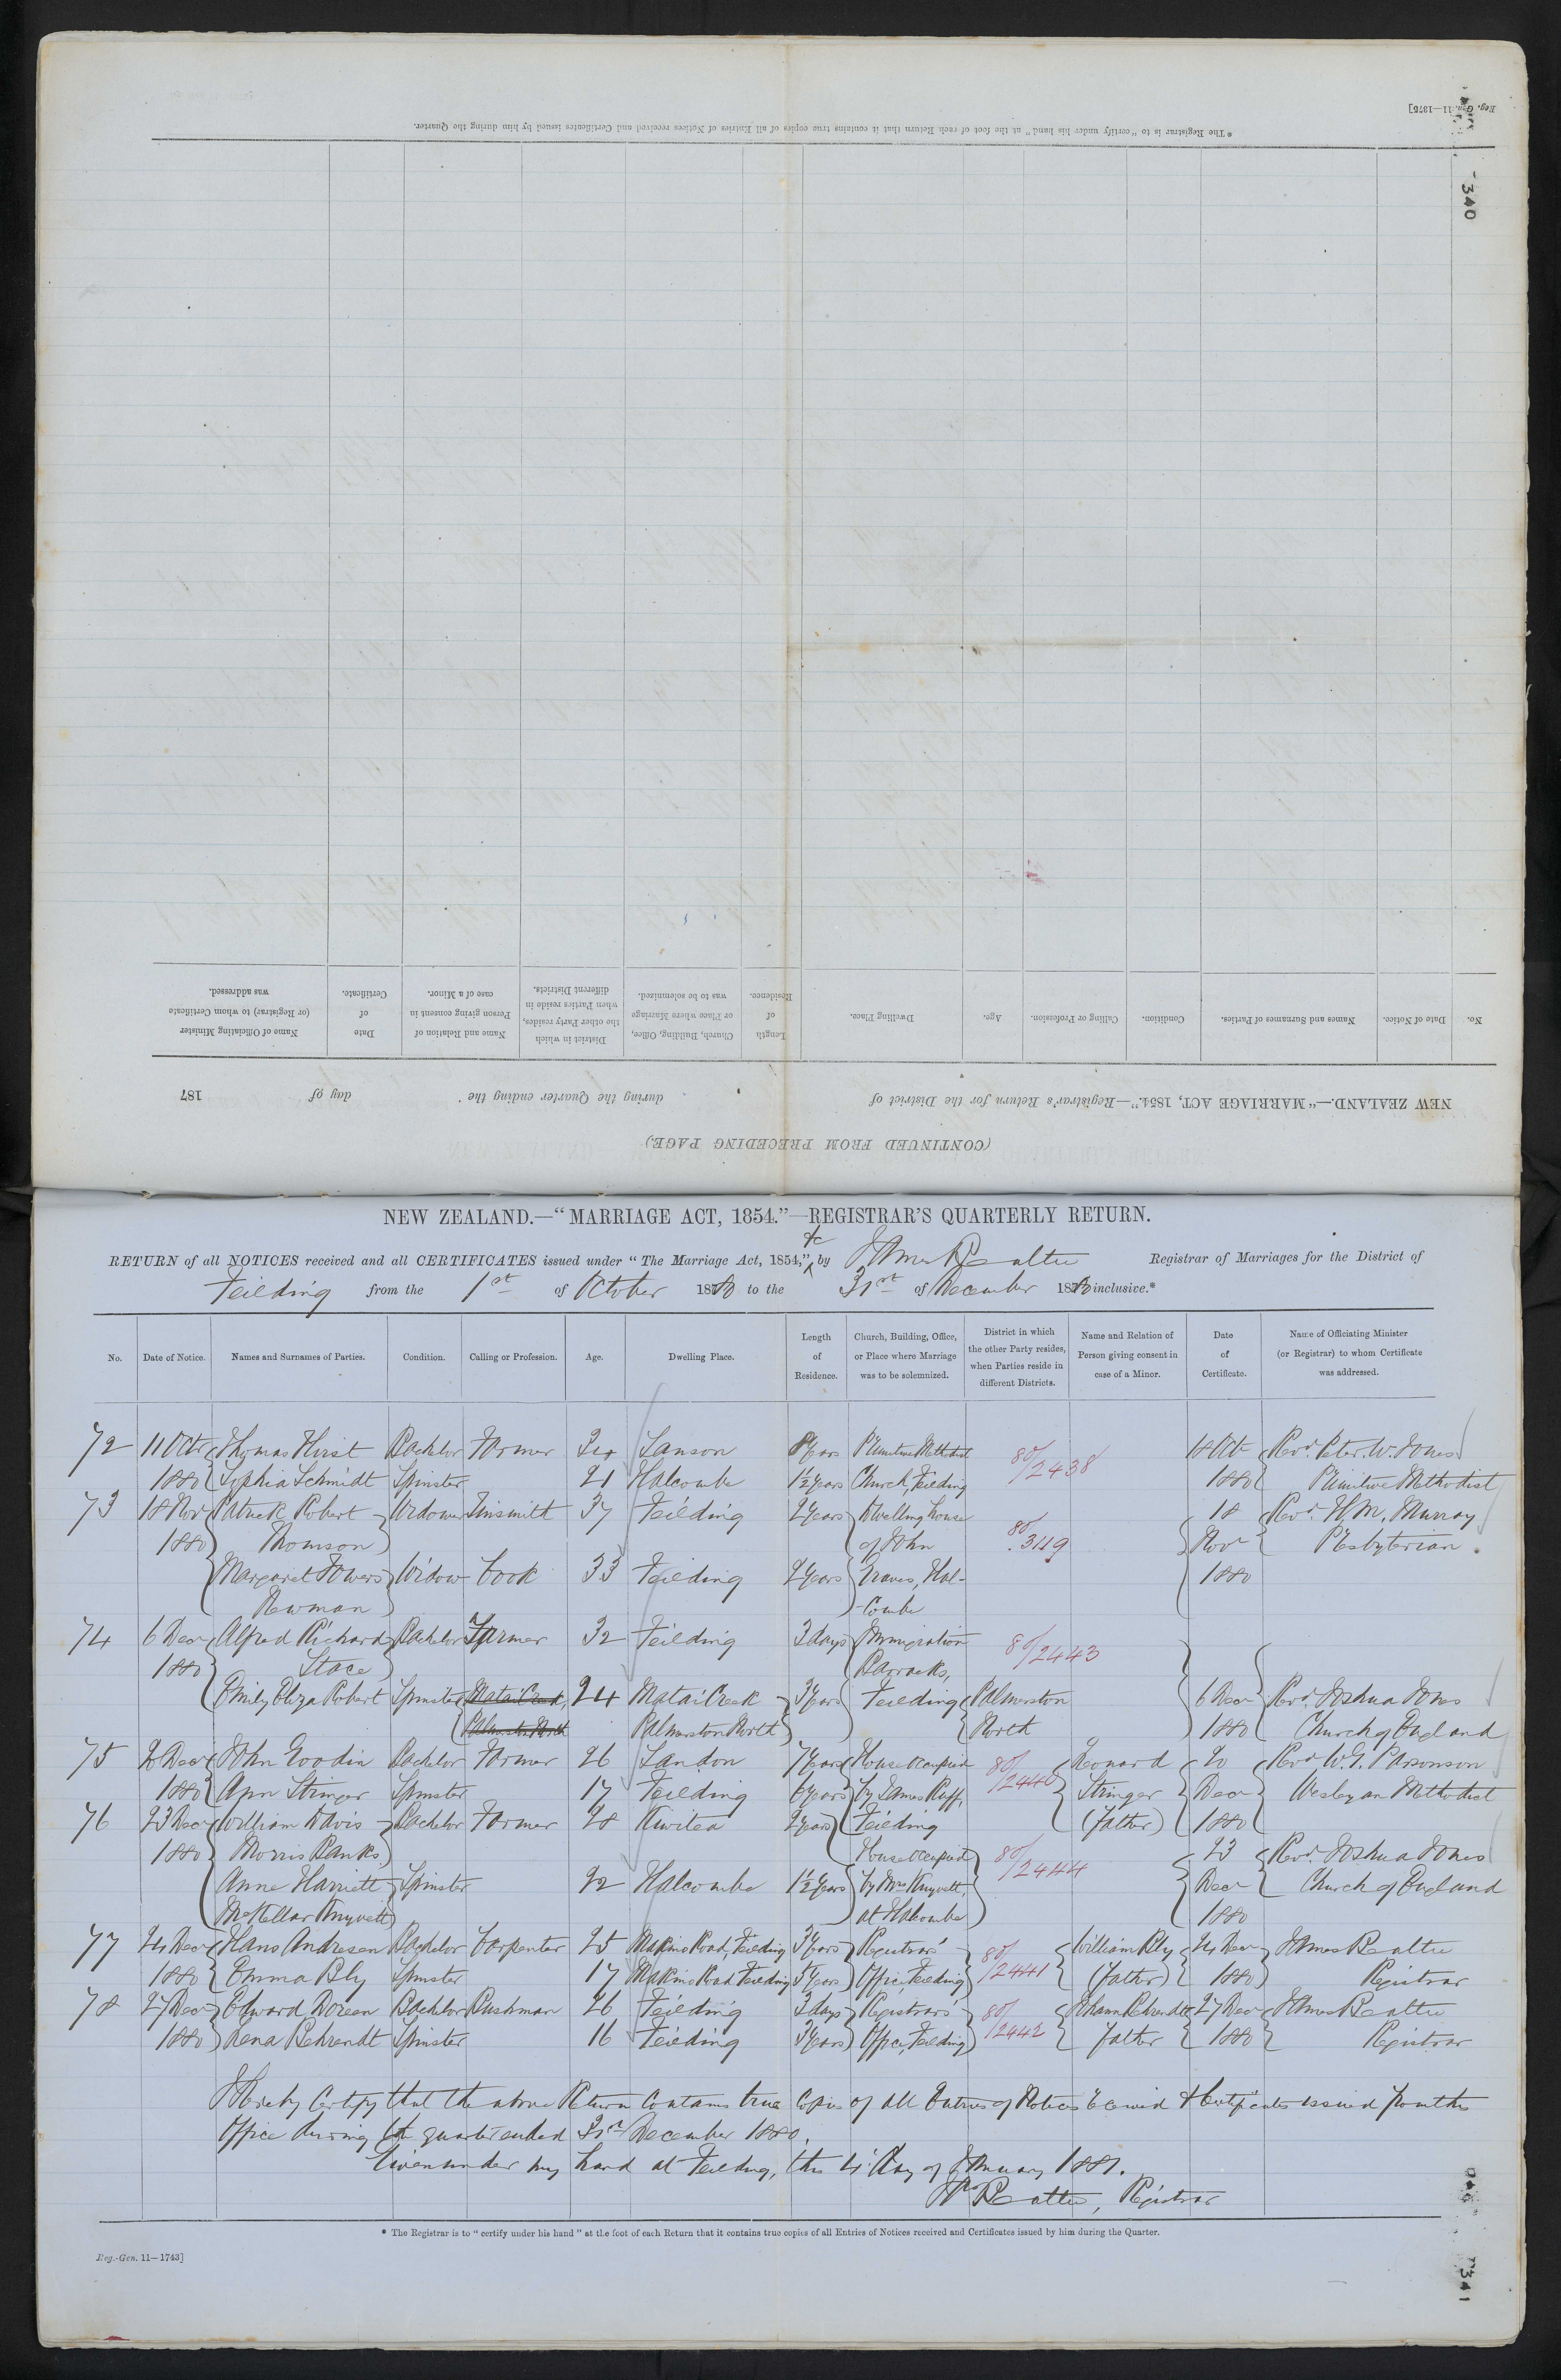 Reg. Gen. 11—1875]
340
* The Registrar is to "certify under his hand" at the foot of each Return that it contains true copies of all Entries of Notices received and Certificates issued by him during the Quarter.
(CONTINUED FROM PRECEDING PAGE.)
NEW ZEALAND.—"MARRIAGE ACT, 1854."—Registrar's Return for the District of during the Quarter ending the day of 187
No. Date of Notice. Names and Surnames of Parties. Condition. Calling or Profession. Age. Dwelling Place. Length of Residence. Church, Building, Office, or Place where Marriage was to be solemnized. District in which the other Party resides, when Parties reside in different Districts. Name and Relation of Person giving consent in case of a Minor. Date of Certificate. Name of Officiating Minister (or Registrar) to whom Certificate was addressed.
NEW ZEALAND.—"MARRIAGE ACT, 1854."—REGISTRAR'S QUARTERLY RETURN.
RETURN of all NOTICES received and all CERTIFICATES issued under "The Marriage Act, 1854," &c by Registrar of Marriages for the District of
Feilding from the 1st of October 1880 to the 31st of December 1880 inclusive.*
No. Date of Notice. Names and Surnames of Parties. Condition. Calling or Profession. Age. Dwelling Place. Length of Residence. Church, Building, Office, or Place where Marriage was to be solemnized. District in which the other Party resides, when Parties reside in different Districts. Name and Relation of Person giving consent in case of a Minor. Date of Certificate. Name of Officiating Minister (or Registrar) to whom Certificate was addressed.
72 11 Octr Thomas Hirst Bachelor Farmer 34 Sanson 8 years Primitive Methodist 80/2438 18 Oct Revd. Peter W. Jones
1880 Sophia Schmidt Spinster 21 Halcombe 1½ years Church, Feilding 1880 Primitive Methodist
73 18 Nov Patrick Robert Widower Tinsmith 37 Feilding 2 years Dwelling house 80/3119 18 Revd. H. M. Murray
1880 Thomson of John Nov Presbyterian.
Margaret Towers Widow Cook 33 Feilding 2 years Graves, Hal- 1880
Newman combe
74 6 Decr Alfred Richard Bachelor Farmer 32 Feilding 3 days Immigration 80/2443
1880 Stace Barracks,
Emily Eliza Robert Spinster Matai Creek, 24 Matai Creek 3 years Feilding Palmerston 6 Decr Revd. Joshua Jones
Palmerston North Palmerston North North 1880 Church of England
75 20 Decr John Goodin Bachelor Farmer 26 Sandon 7 years House occupied 80/2440 Leonard 20 Revd W. G. Parsonson
1880 Ann Stringer Spinster 17 Feilding 6 years by James Ruff, Stringer Decr Wesleyan Methodist
76 23 Decr William Davis Bachelor Farmer 28 Kiwitea 2 years Feilding (father) 1880
1880 Morris Banks House occupied 80/2444 23 Revd. Joshua Jones
Anne Harriett Spinster 22 Halcombe 1½ years by Mrs Knyvett, Decr Church of England
McKellar Knyvett at Halcombe 1880
77 24 Decr Hans Andresen Bachelor Carpenter 25 Makino Road, Feilding 3 years Registrar's 80/2441 William Bly 24 Decr
1880 Emma Bly Spinster 17 Makino Road Feilding 5 years Office, Feilding (father) 1880 Registrar
78 27 Decr Edward Doreen Bachelor Bushman 26 Feilding 3 days Registrar's 80/2442 Johann Behrendt 27 Decr
1880 Lena Behrendt Spinster 16 Feilding 3 years Office, Feilding father 1880 Registrar
I Hereby Certify that the above Return contains true copies of all Entries of Notices received & Certificates issued from this
Office during the quarter ended 31st December 1880.
Given under my hand at Feilding, this 4th day of January 1881.
Registrar
* The Registrar is to "certify under his hand" at the foot of each Return that it contains true copies of all Entries of Notices received and Certificates issued by him during the Quarter.
Reg.-Gen. 11—1743]
341